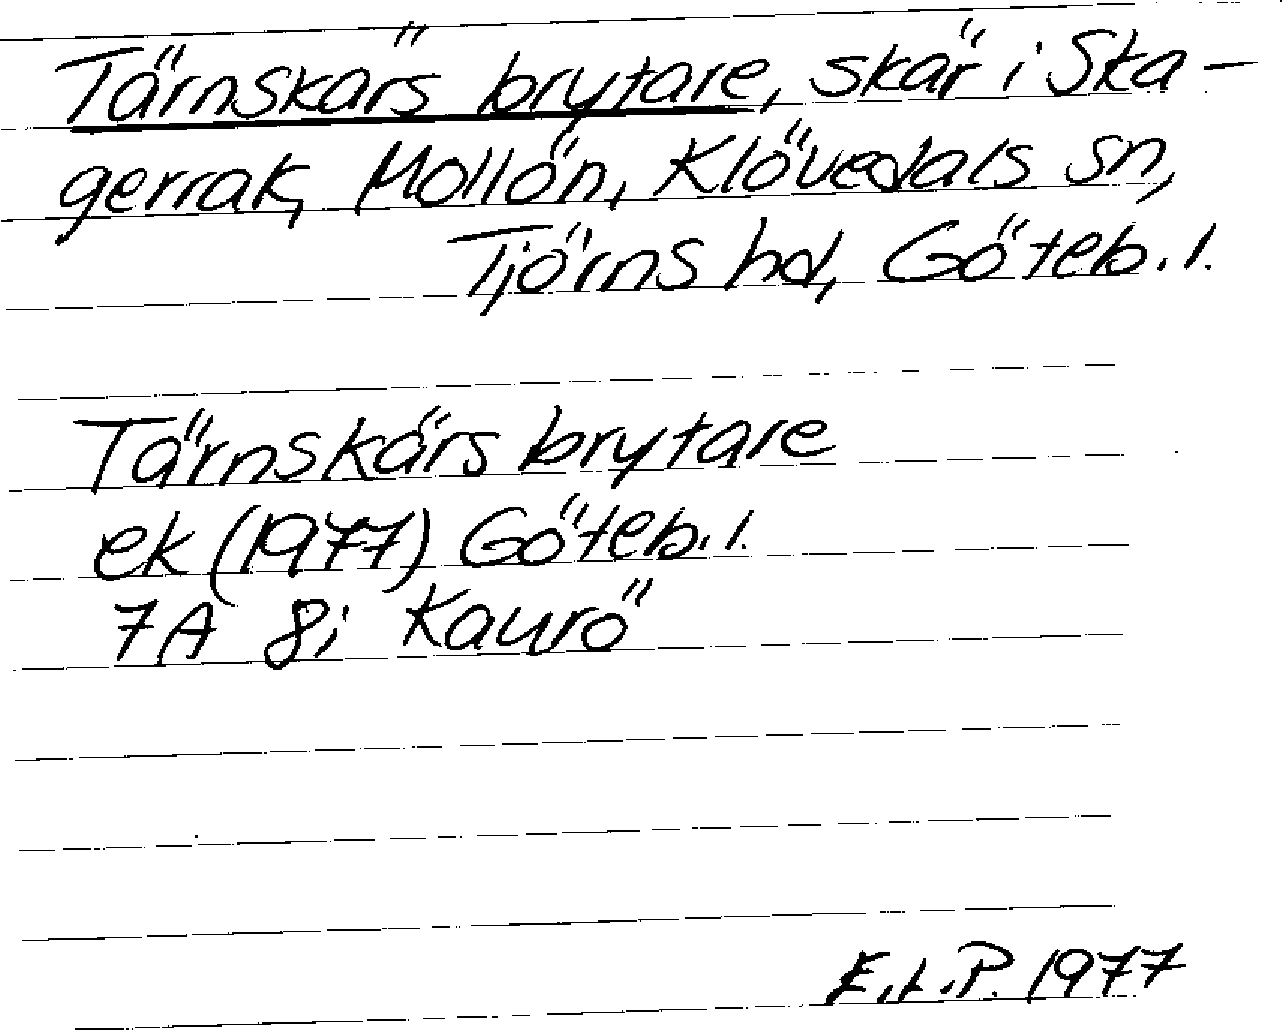 Tärnskärs brytare, skär i Ska-
gerrak, Mollön, Klövedals sn,
Tjörns hd, Göteb. l.
Tärnskärs brytare
ek (1977) Göteb. l.
7A 8i Kaurö
E.L.P. 1977